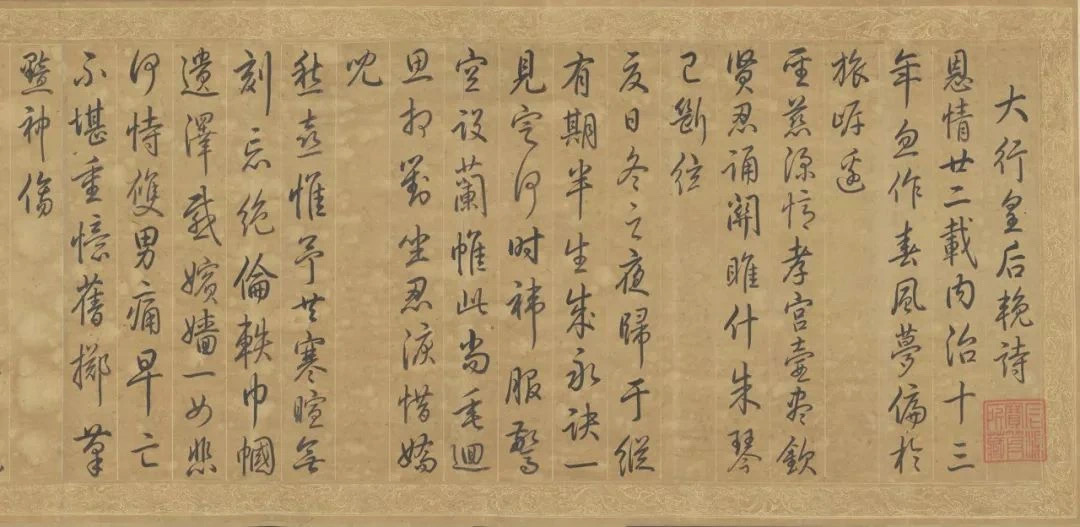 大行皇后輓詩
恩情廿二載內治十三
年忽作春風夢偏於
旅岸邊
聖慈深憶孝宮壼盡欽
賢忍誦關雎什朱琴
已斷弦
夏日冬之夜歸于縱
有期半生成永訣一
見定何時褘服驚
空設蘭帷此尚垂迴
思相對坐忍淚惜嬌
兒
愁喜惟予共寒暄無
刻忘絕倫軼巾幗
遺澤感嬪嬙一女悲
何恃雙男痛早亡
不堪重憶舊擲筆
黯神傷